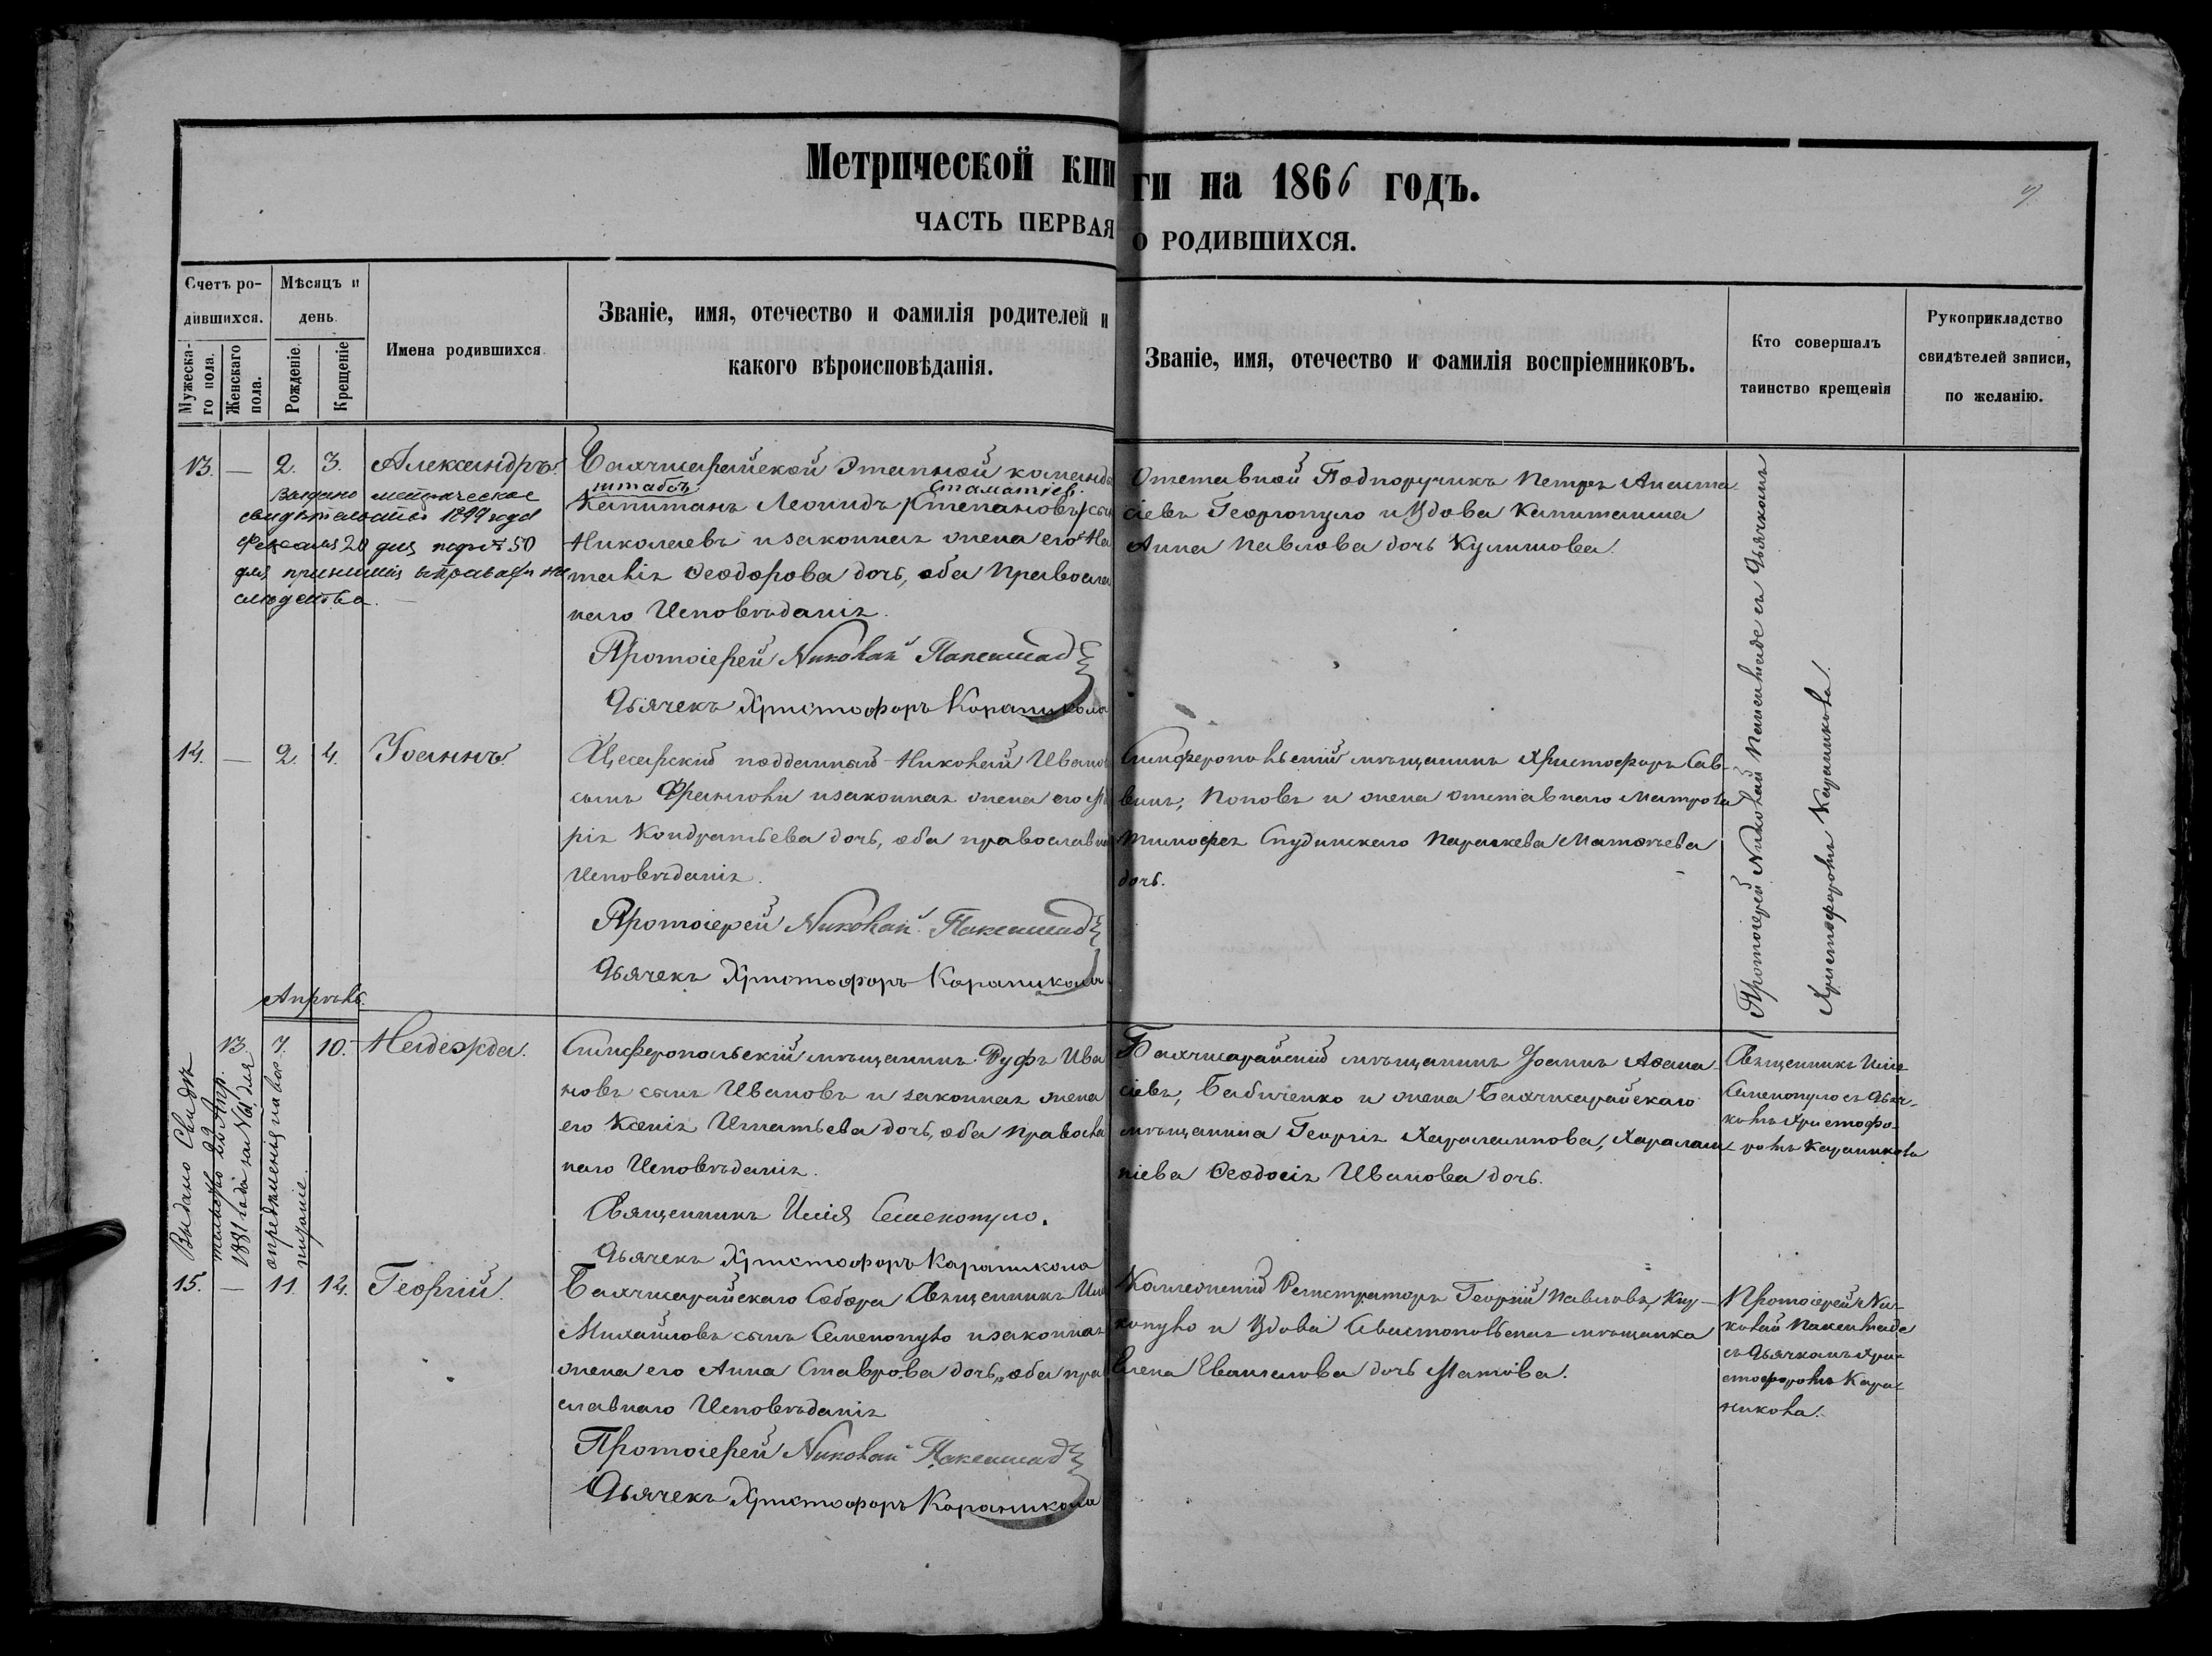 Метрической книги на 1866 годъ.
ЧАСТЬ ПЕРВАЯ О РОДИВШИХСЯ.
Счетъ ро-
дившихся.
Мужеска-
го пола.
Женскаго
пола.
Мѣсяцъ и
день.
Рожденіе.
Крещеніе
Имена родившихся.
Званіе, имя, отечество и фамилія родителей и
какого вѣроисповѣданія.
Званіе, имя, отечество и фамилія воспріемниковъ.
Кто совершалъ
таинство крещенія
Рукоприкладство
свидѣтелей записи,
по желанію.
13. — 2. 3. Александръ.
Выдано метрическое
свидѣтельство 1899 года
20 дня 50
для
Бахчисарайской Этапной команды
штабсъ Стаматіев.
Капитанъ Леонидъ (Степановъ) сынъ
Николаевъ и законная жена его На
талія Ѳеодорова дочь, оба Правосла
наго Исповѣданія.
Протоіерей Николай
Дьячекъ Христофоръ Караникола
Отставной Подпоручикъ Петръ Анаста
сіевъ Георгопуло и Вдова Капитанша
Анна Павлова дочь Кулишова.
Протоіерей Николай съ Дьячкомъ
Христофоромъ Караникола.
14. — 2. 4. Іоаннъ.
подданный Николай Иванов
сынъ и законная жена его Ма
рія Кондратьева дочь, оба православна
Исповѣданія.
Протоіерей Николай
Дьячекъ Христофоръ Караникола.
Симферопольскій мѣщанинъ Христофоръ Сав-
винъ, Поповъ и жена отставнаго Матроса
Тимофея Параскева Матвѣева
дочь.
Апрѣль.
13. 7. 10. Надежда.
Выдано Свидѣ
тельство 22 Апр.
1881 года за № для
опредѣленія на вос
питаніе.
Симферопольскій мѣщанинъ Руфъ Ива
новъ сынъ Ивановъ и законная жена
его Ксенія Игнатьева дочь, оба Правосла
наго Исповѣданія.
Священникъ Илія Семенопуло.
Дьячекъ Христофоръ Караникола
Бахчисарайскій мѣщанинъ Іоаннъ Аѳана
сіевъ, Бабиченко и жена Бахчисарайскаго
мѣщанина Георгія Харалампова, Харалам
піева Ѳеодосія Иванова дочь.
Священникъ Илія
Семенопуло съ Дьяч-
комъ Христофо-
ромъ Караникола
15. — 11. 12. Георгій.
Бахчисарайскаго Собора Священникъ Илія
Михайловъ сынъ Семенопуло и законная
жена его Анна Ставрова дочь, оба пра
славнаго Исповѣданія
Протоіерей Николай
Дьячекъ Христофоръ Караникола
Коллежскій Регистраторъ Георгій Павловъ, Кир-
копуло и Вдова Севастопольская мѣщанка
Елена Евангелова дочь
Протоіерей Ни-
колай
съ Дьячкомъ Хри-
стофоромъ Кара-
никола.